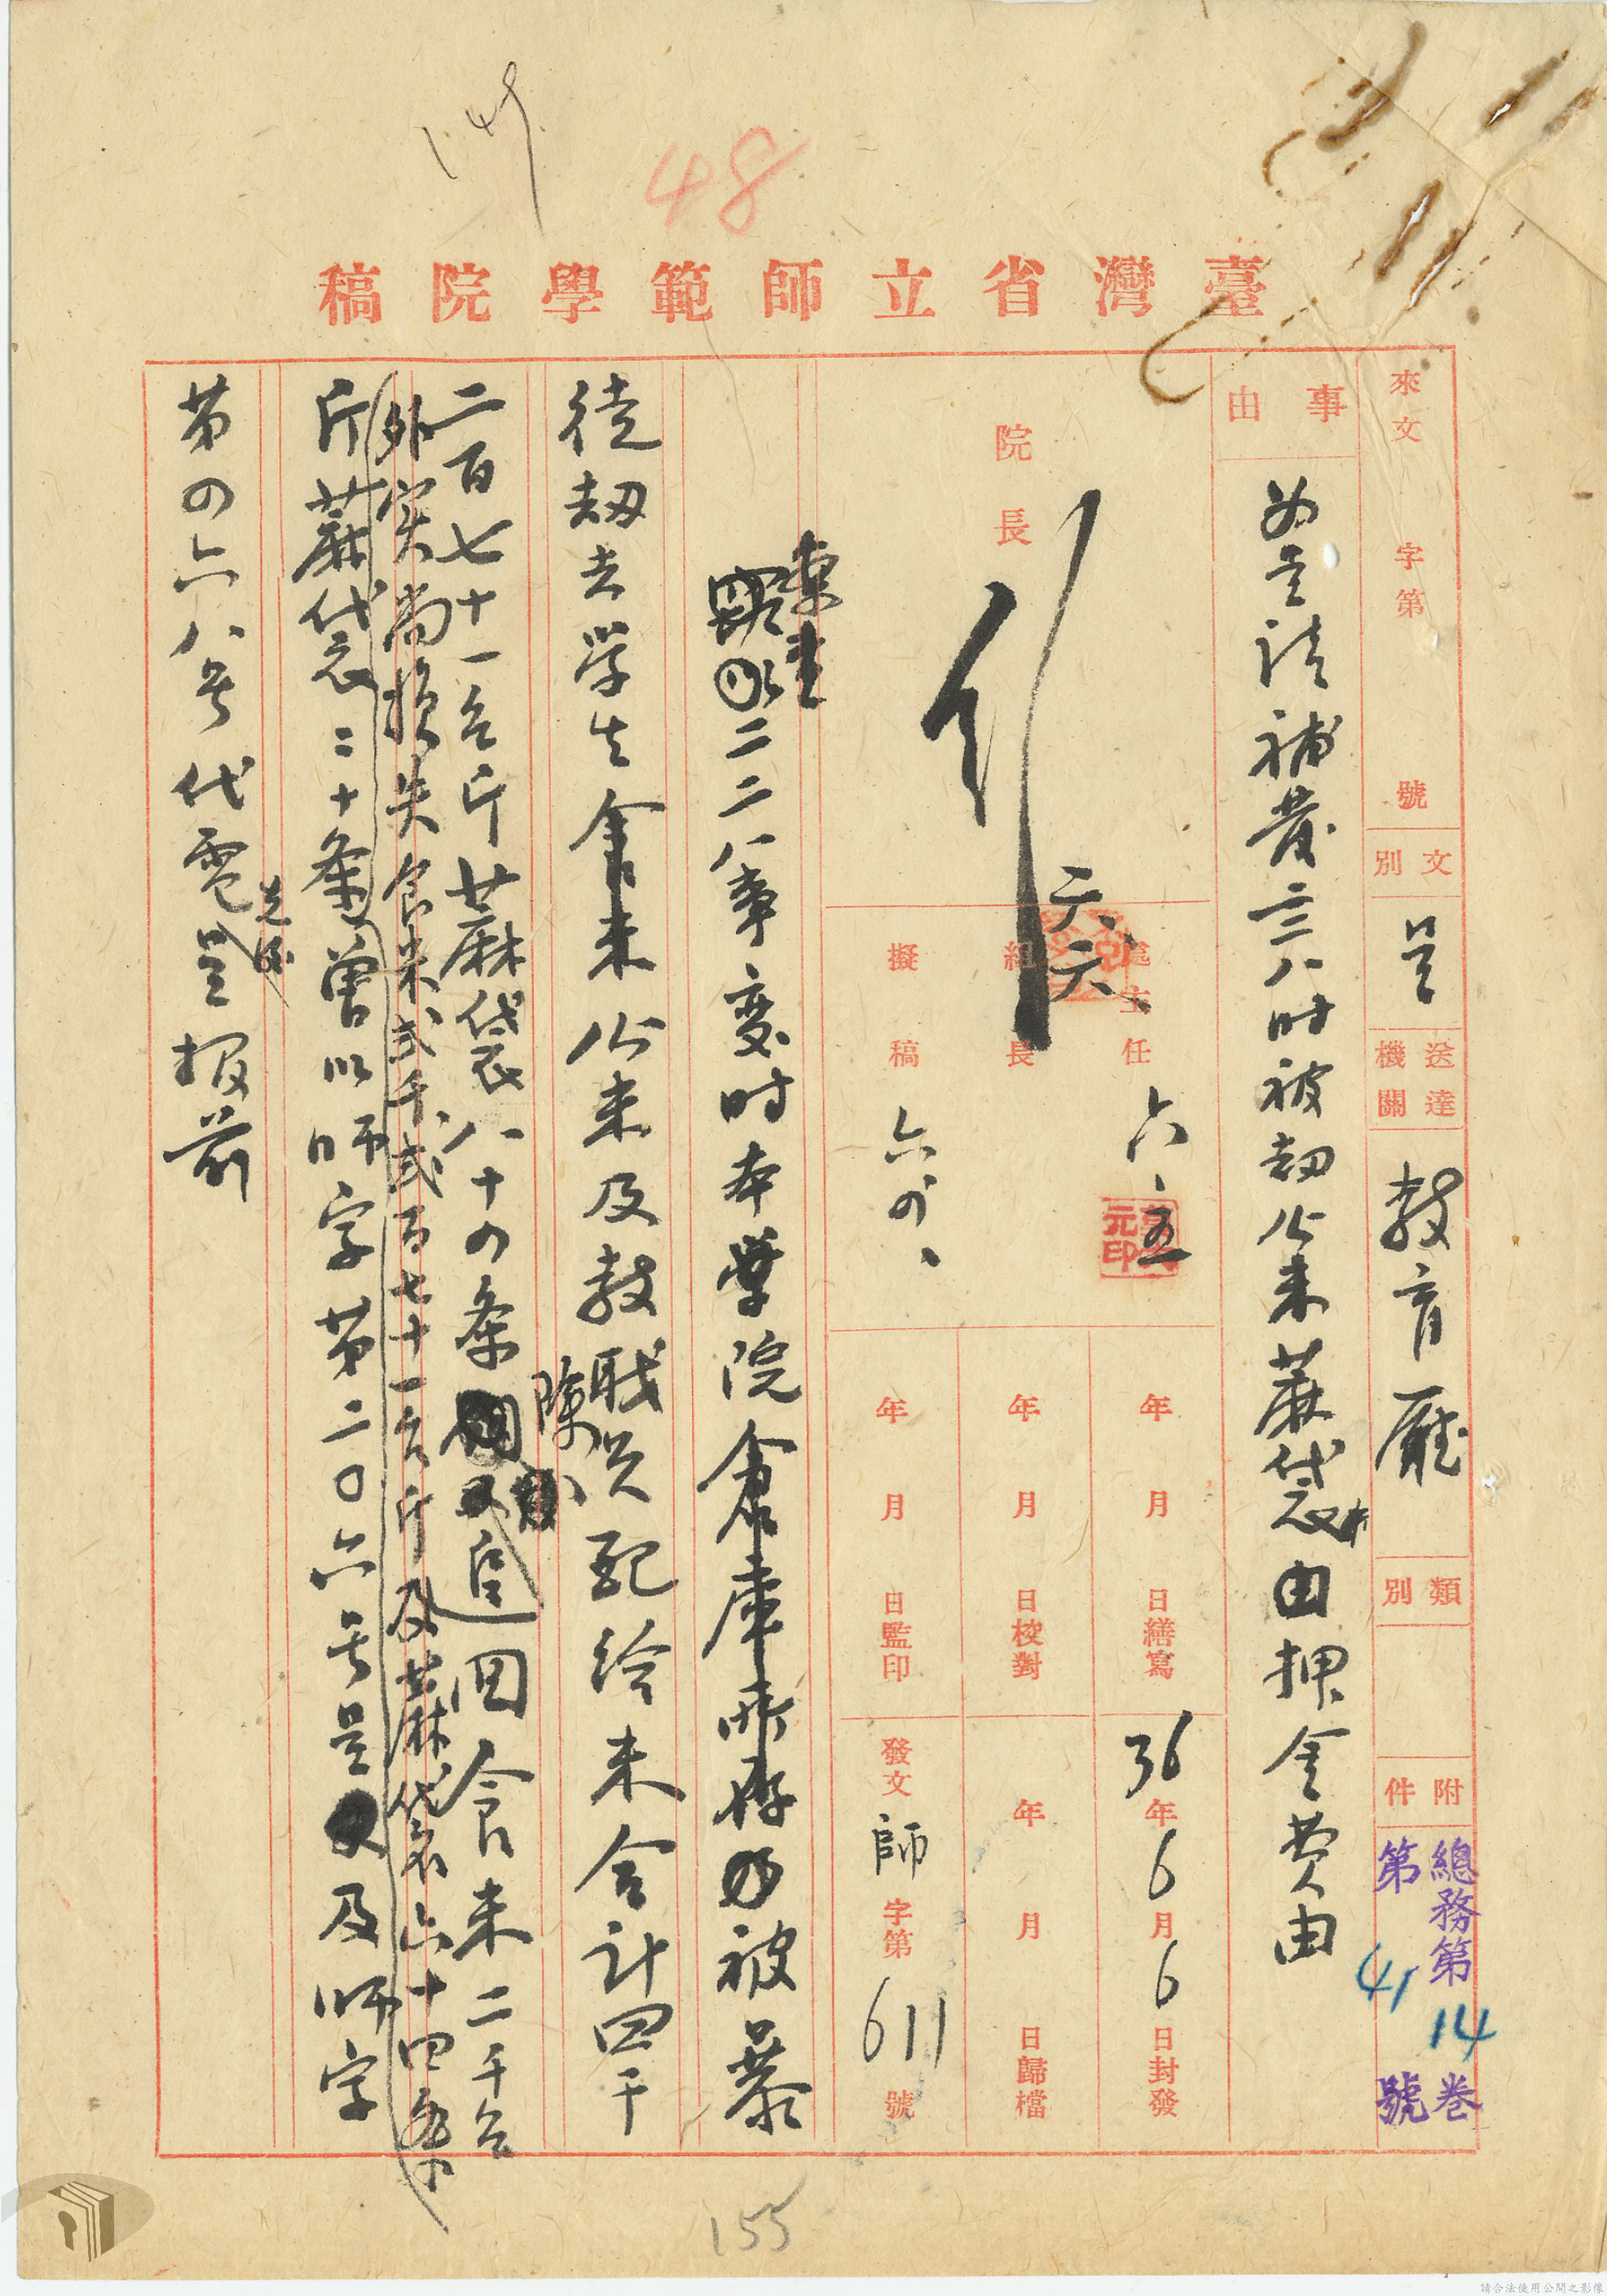 48
臺灣省立師範學院稿
來文 字第 號
文別 呈
送達機關 教育廳
類別
附件
總務第14卷
第41號
事由
為呈請補發二二八時被劫公米蔴袋由押金費由
院長
六、六、
處主任 六、五
組長
擬稿 六、
年 月 日繕寫
年 月 日校對
年 月 日監印
36年6月6日封發
年 月 日歸檔
發文 師 字第 611 號
案查
二二八事變時本學院倉庫所存 被暴
徒劫去学生食米公米及教職員配給米合計四千
二百七十一台斤蔴袋八十四条 追回食米二千台
除
外实尚損失食米弍千弍百七十一台斤及蔴袋六十四条
斤蔴袋二十条曾以師字第二〇六号呈 及師字
第四六八号代電呈报前
先後
155
請合法使用公開之影像